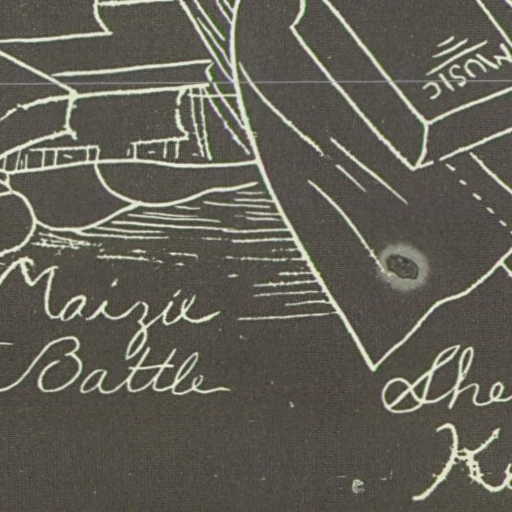 MUSIC
Maizie
Battle
She